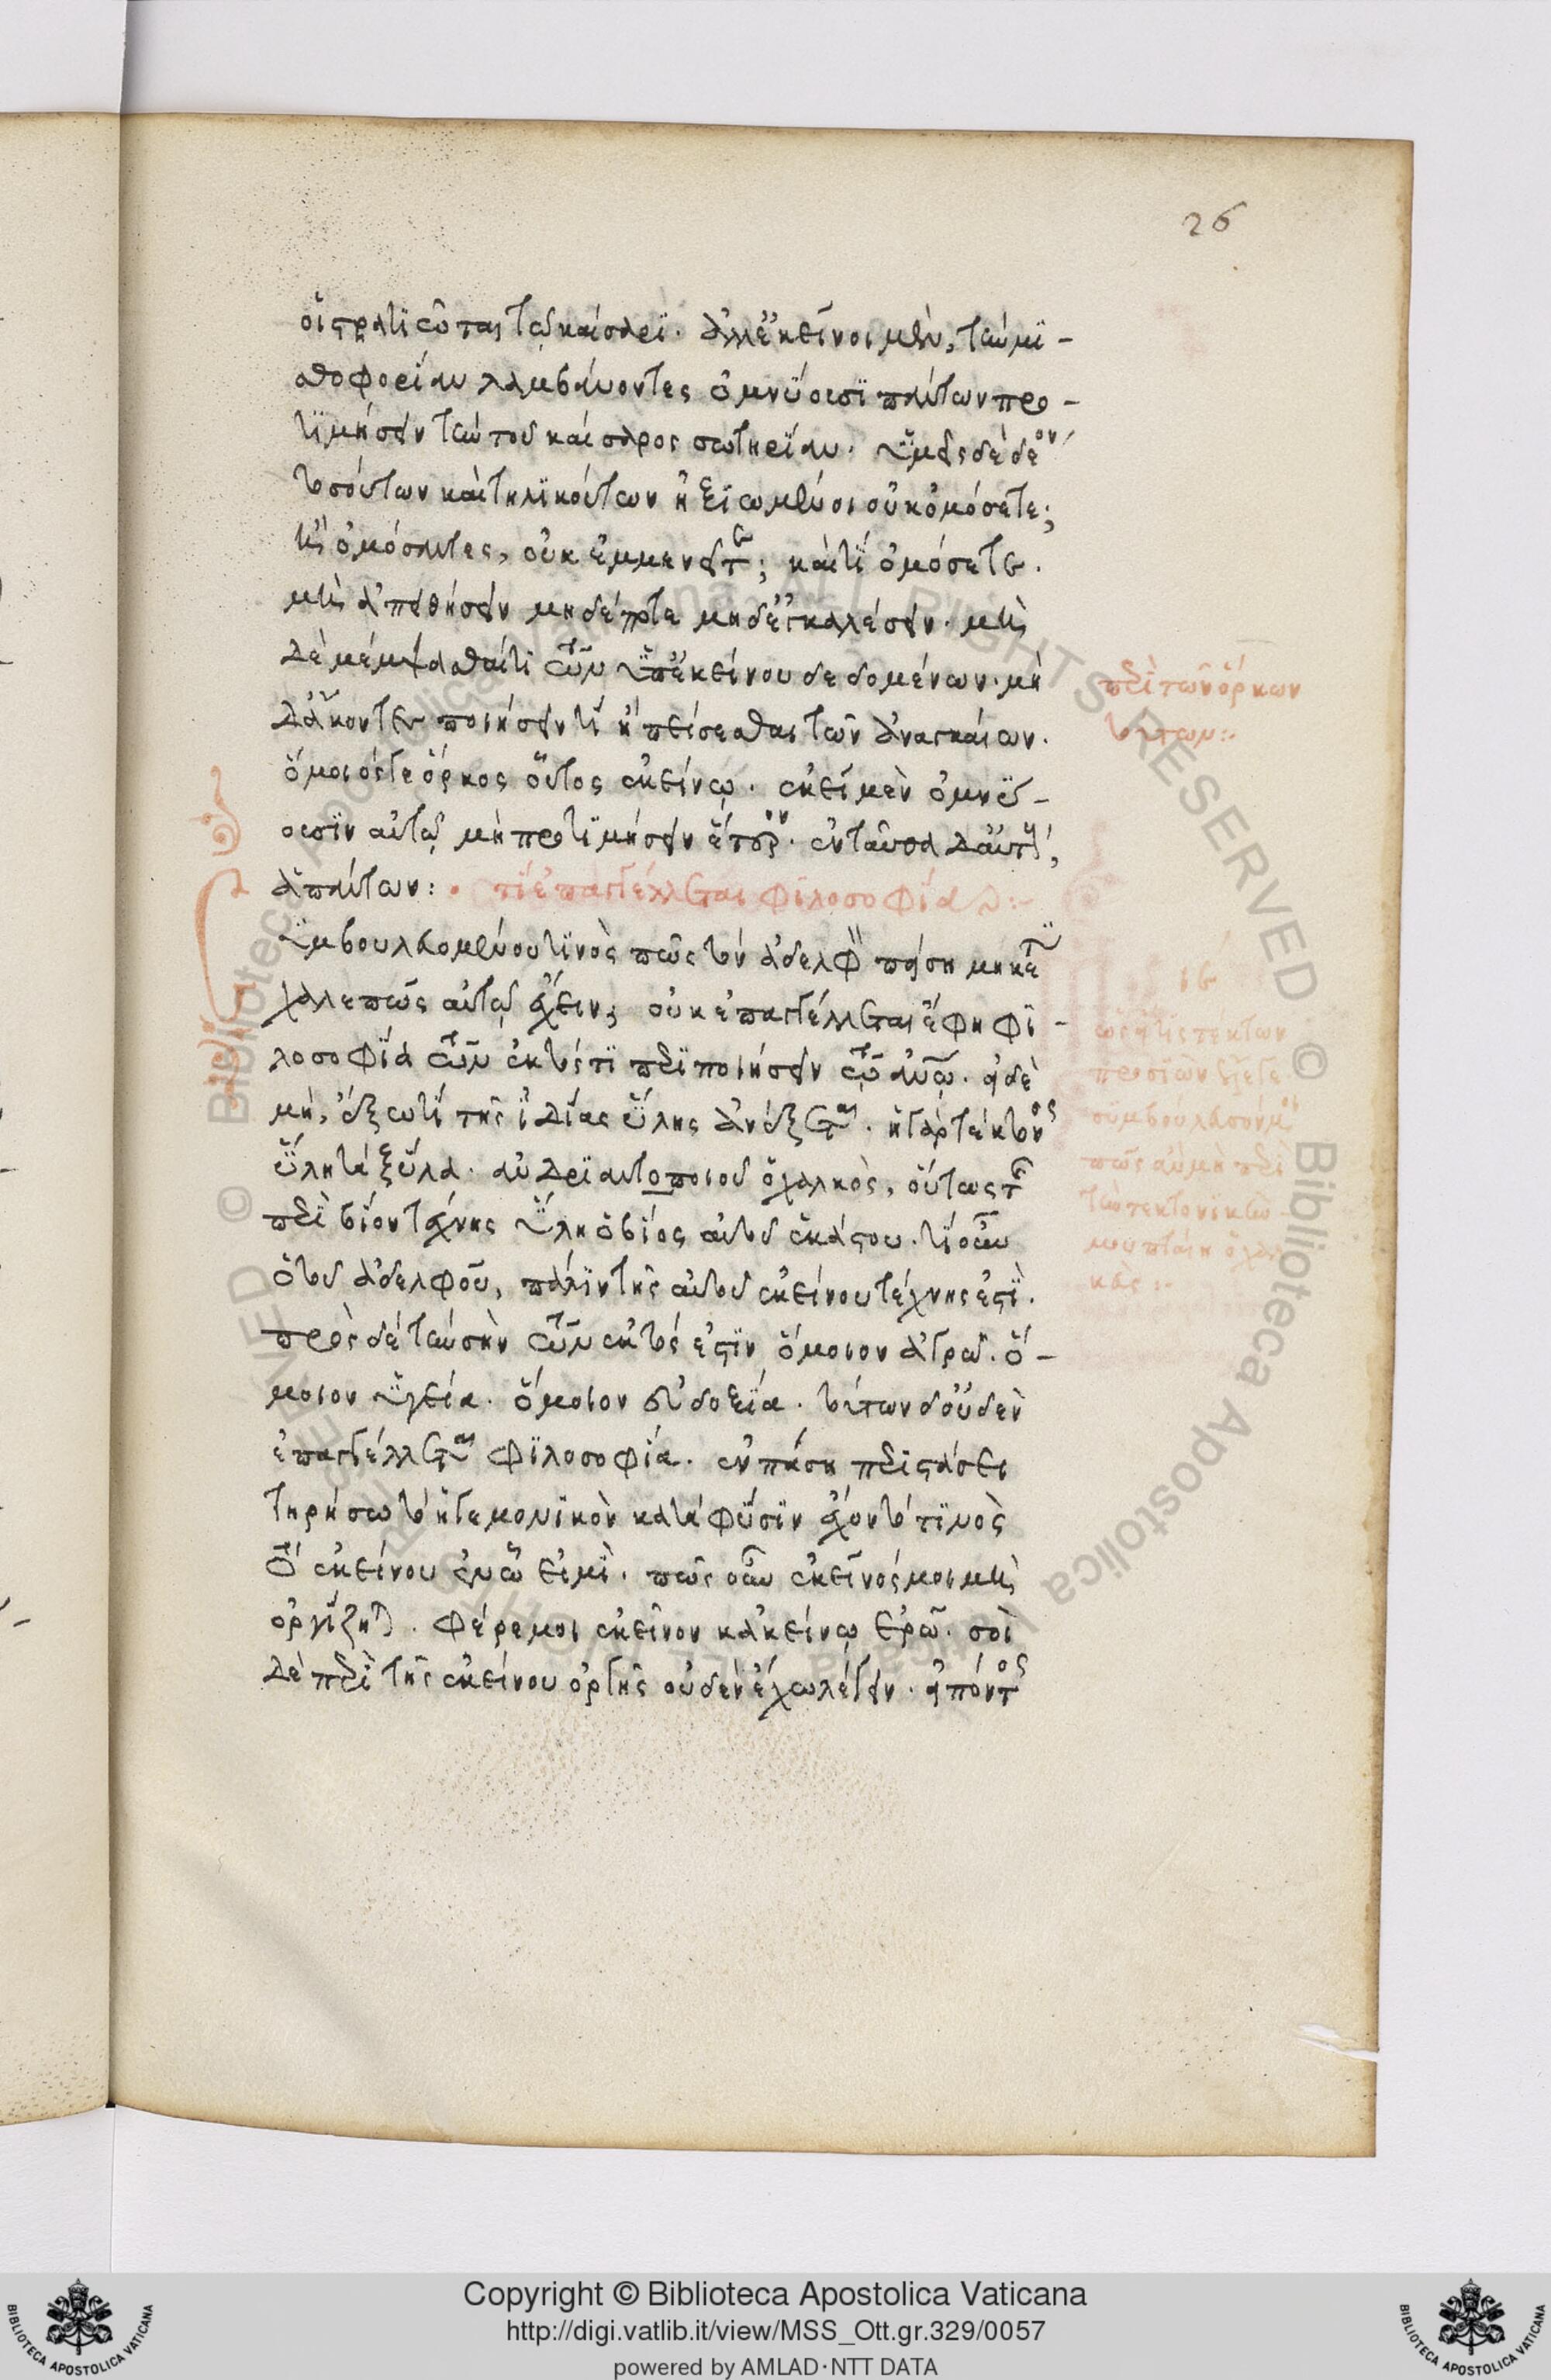 26
οἱ στρατιῶται τῷ καίσαρι. ἀλλ' ἐκεῖνοι μὲν, τὴν μι-
σθοφορίαν λαμβάνοντες ὀμνύουσι πάντων προ-
τιμήσειν τὴν τοῦ καίσαρος σωτηρίαν. ὑμεῖς δὲ δὲ
τοσούτων καὶ τηλικούτων ἠξιωμένοι οὐκ ὀμόσετε;
ἢ ὀμόσαντες, οὐκ ἐμμενεῖτε; καὶ τί ὀμόσετε.
μὴ ἀπειθήσειν μηδέποτε μηδὲ ἐγκαλέσειν. μὴ
δὲ μέμψασθαί τι τῶν ὑπ' ἐκείνου δεδομένων. μὴ
δ' ἄκοντες ποιήσειν τὶ ἢ πείσεσθαι τῶν ἀναγκαίων.
ὅμοιός γε ὅρκος οὗτος ἐκείνῳ. ἐκεῖ μὲν ὀμνύ-
ουσιν αὐτῷ μὴ προτιμήσειν ἕτερον. ἐνταῦθα δ' αὑτοὺς,
ἁπάντων:
τί ἐπαγγέλλεται φιλοσοφία:
Συμβουλευομένου τινὸς πῶς τὸν ἀδελφὸν πείσῃ μηκέτι
χαλεπῶς αὐτῷ ἔχειν; οὐκ ἐπαγγέλλεται ἔφη φι-
λοσοφία τῶν ἐκτός τι περιποιήσειν τῷ ἀνθρώπῳ. εἰ δὲ
μὴ, ἔξω τι τῆς ἰδίας ὕλης ἀναδέξεται. ἡ γὰρ τέκτονος
ὕλη τὰ ξύλα. ἀνδριαντοποιοῦ ὁ χαλκὸς, οὕτως τῆς
περὶ βίον τέχνης ὕλη ὁ βίος αὐτοῦ ἑκάστου. τί οὖν
ὁ τοῦ ἀδελφοῦ, πάλιν τῆς αὐτοῦ ἐκείνου τέχνης ἐστί.
πρὸς δὲ τὴν σὴν τῶν ἐκτός ἐστιν ὅμοιον ἀγρῷ. ὅ-
μοιον ὑγεία. ὅμοιον εὐδοξία. τούτων δ' οὐδὲν
ἐπαγγέλλεται φιλοσοφία. ἐν πάσῃ περιστάσει
τηρήσω τὸ ἡγεμονικὸν κατὰ φύσιν ἔχον τὸ τίνος
τὸ ἐκείνου ἐν ᾧ εἰμί. πῶς οὖν ἐκεῖνός μοι μὴ
ὀργίζηται. φέρε μοι ἐκεῖνον κἀκείνῳ ἐρῶ. σοὶ
δὲ περὶ τῆς ἐκείνου ὀργῆς οὐδὲν ἔχω λέγειν. εἰπόντος
περὶ τῶν ὅρκων
τούτων:
ιε
ὡς εἴ τις τέκτων
προσιὼν
συμβούλευσόν μοι
πῶς ἂν μὴ περὶ
τὴν τεκτονικήν
μου πταίη
Copyright © Biblioteca Apostolica Vaticana
http://digi.vatlib.it/view/MSS_Ott.gr.329/0057
powered by AMLAD·NTT DATA
BIBLIOTECA APOSTOLICA VATICANA
BIBLIOTECA APOSTOLICA VATICANA